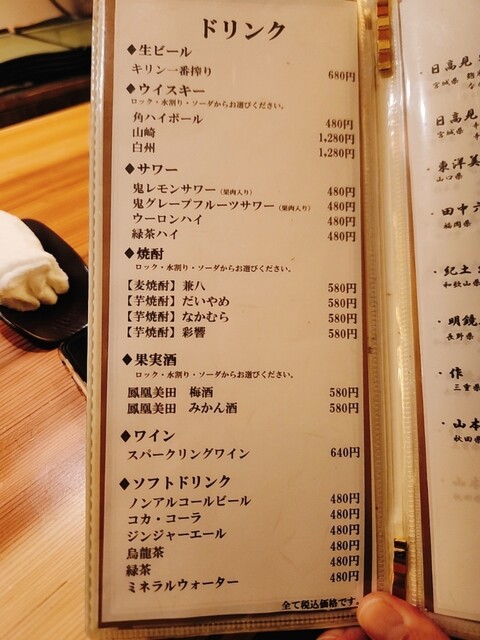 ドリンク
◆生ビール
キリン一番搾り 680円
◆ウイスキー
ロック・水割り・ソーダからお選びください。
角ハイボール 480円
山崎 1,280円
白州 1,280円
◆サワー
鬼レモンサワー（果肉入り） 480円
鬼グレープフルーツサワー（果肉入り） 480円
ウーロンハイ 480円
緑茶ハイ 480円
◆焼酎
ロック・水割り・ソーダからお選びください。
【麦焼酎】兼八 580円
【芋焼酎】だいやめ 580円
【芋焼酎】なかむら 580円
【芋焼酎】彩響 580円
◆果実酒
ロック・水割り・ソーダからお選びください。
鳳凰美田 梅酒 580円
鳳凰美田 みかん酒 580円
◆ワイン
スパークリングワイン 640円
◆ソフトドリンク
ノンアルコールビール 480円
コカ・コーラ 480円
ジンジャーエール 480円
烏龍茶 480円
緑茶 480円
ミネラルウォーター 480円
全て税込価格です。
・日高見
宮城県
日高見
宮城県
・東洋美
山口県
・田中六
福岡県
・紀土
和歌山県
・明鏡
長野県
・作
三重県
・山本
秋田県